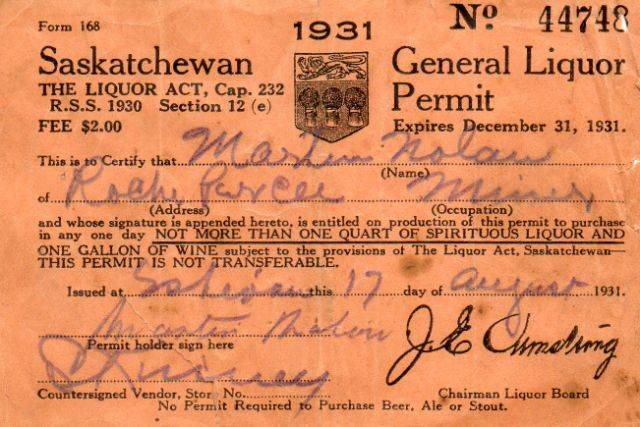 Form 168
1931
Nº 44748
Saskatchewan
THE LIQUOR ACT, Cap. 232
R.S.S. 1930 Section 12 (e)
FEE $2.00
General Liquor
Permit
Expires December 31, 1931.
This is to Certify that Martin Nolan
(Name)
of Roche Percee Miner
(Address) (Occupation)
and whose signature is appended hereto, is entitled on production of this permit to purchase
in any one day NOT MORE THAN ONE QUART OF SPIRITUOUS LIQUOR AND
ONE GALLON OF WINE subject to the provisions of The Liquor Act, Saskatchewan—
THIS PERMIT IS NOT TRANSFERABLE.
Issued at Estevan this 17 day of August 1931.
Martin Nolan
Permit holder sign here
J E Armstrong
Countersigned Vendor, Stor No.
Chairman Liquor Board
No Permit Required to Purchase Beer, Ale or Stout.